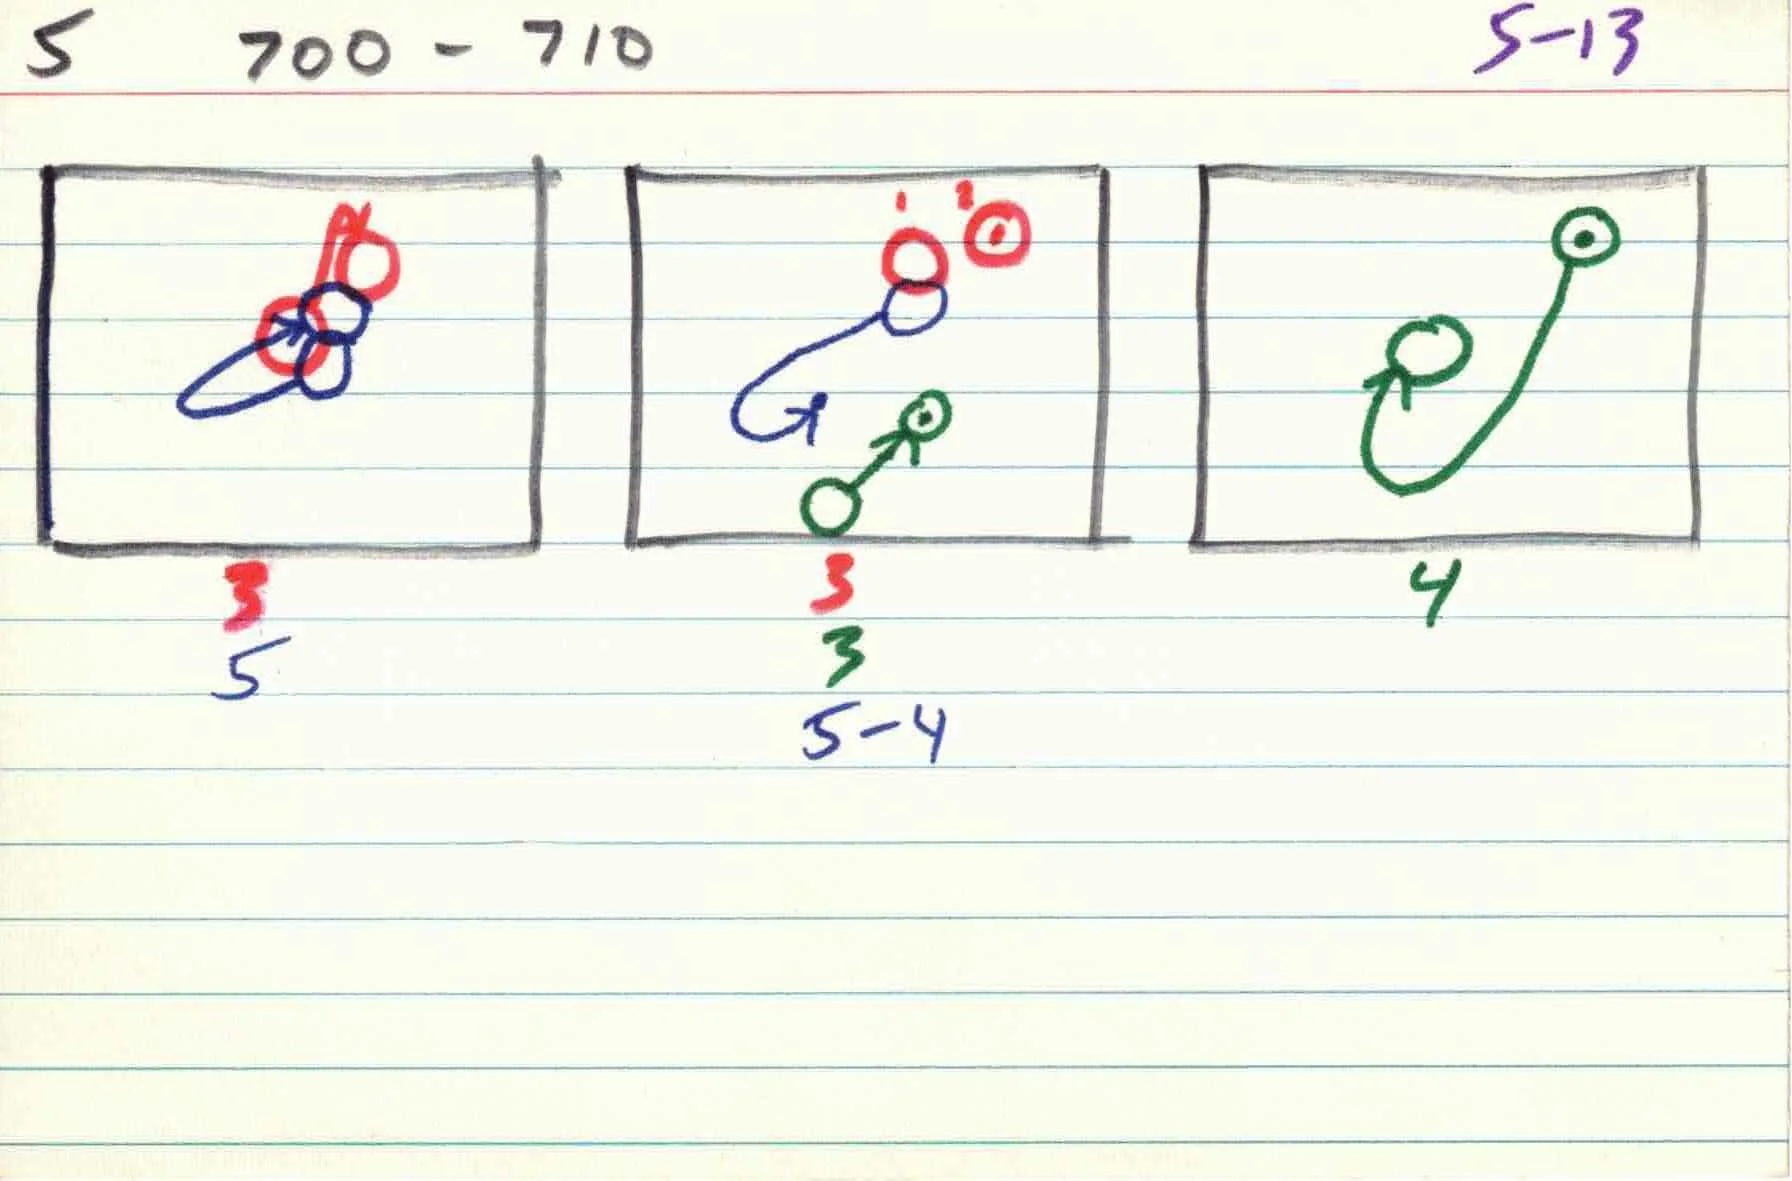 5 700 - 710 5-13
1 2
3 3 4
5 3
5-4